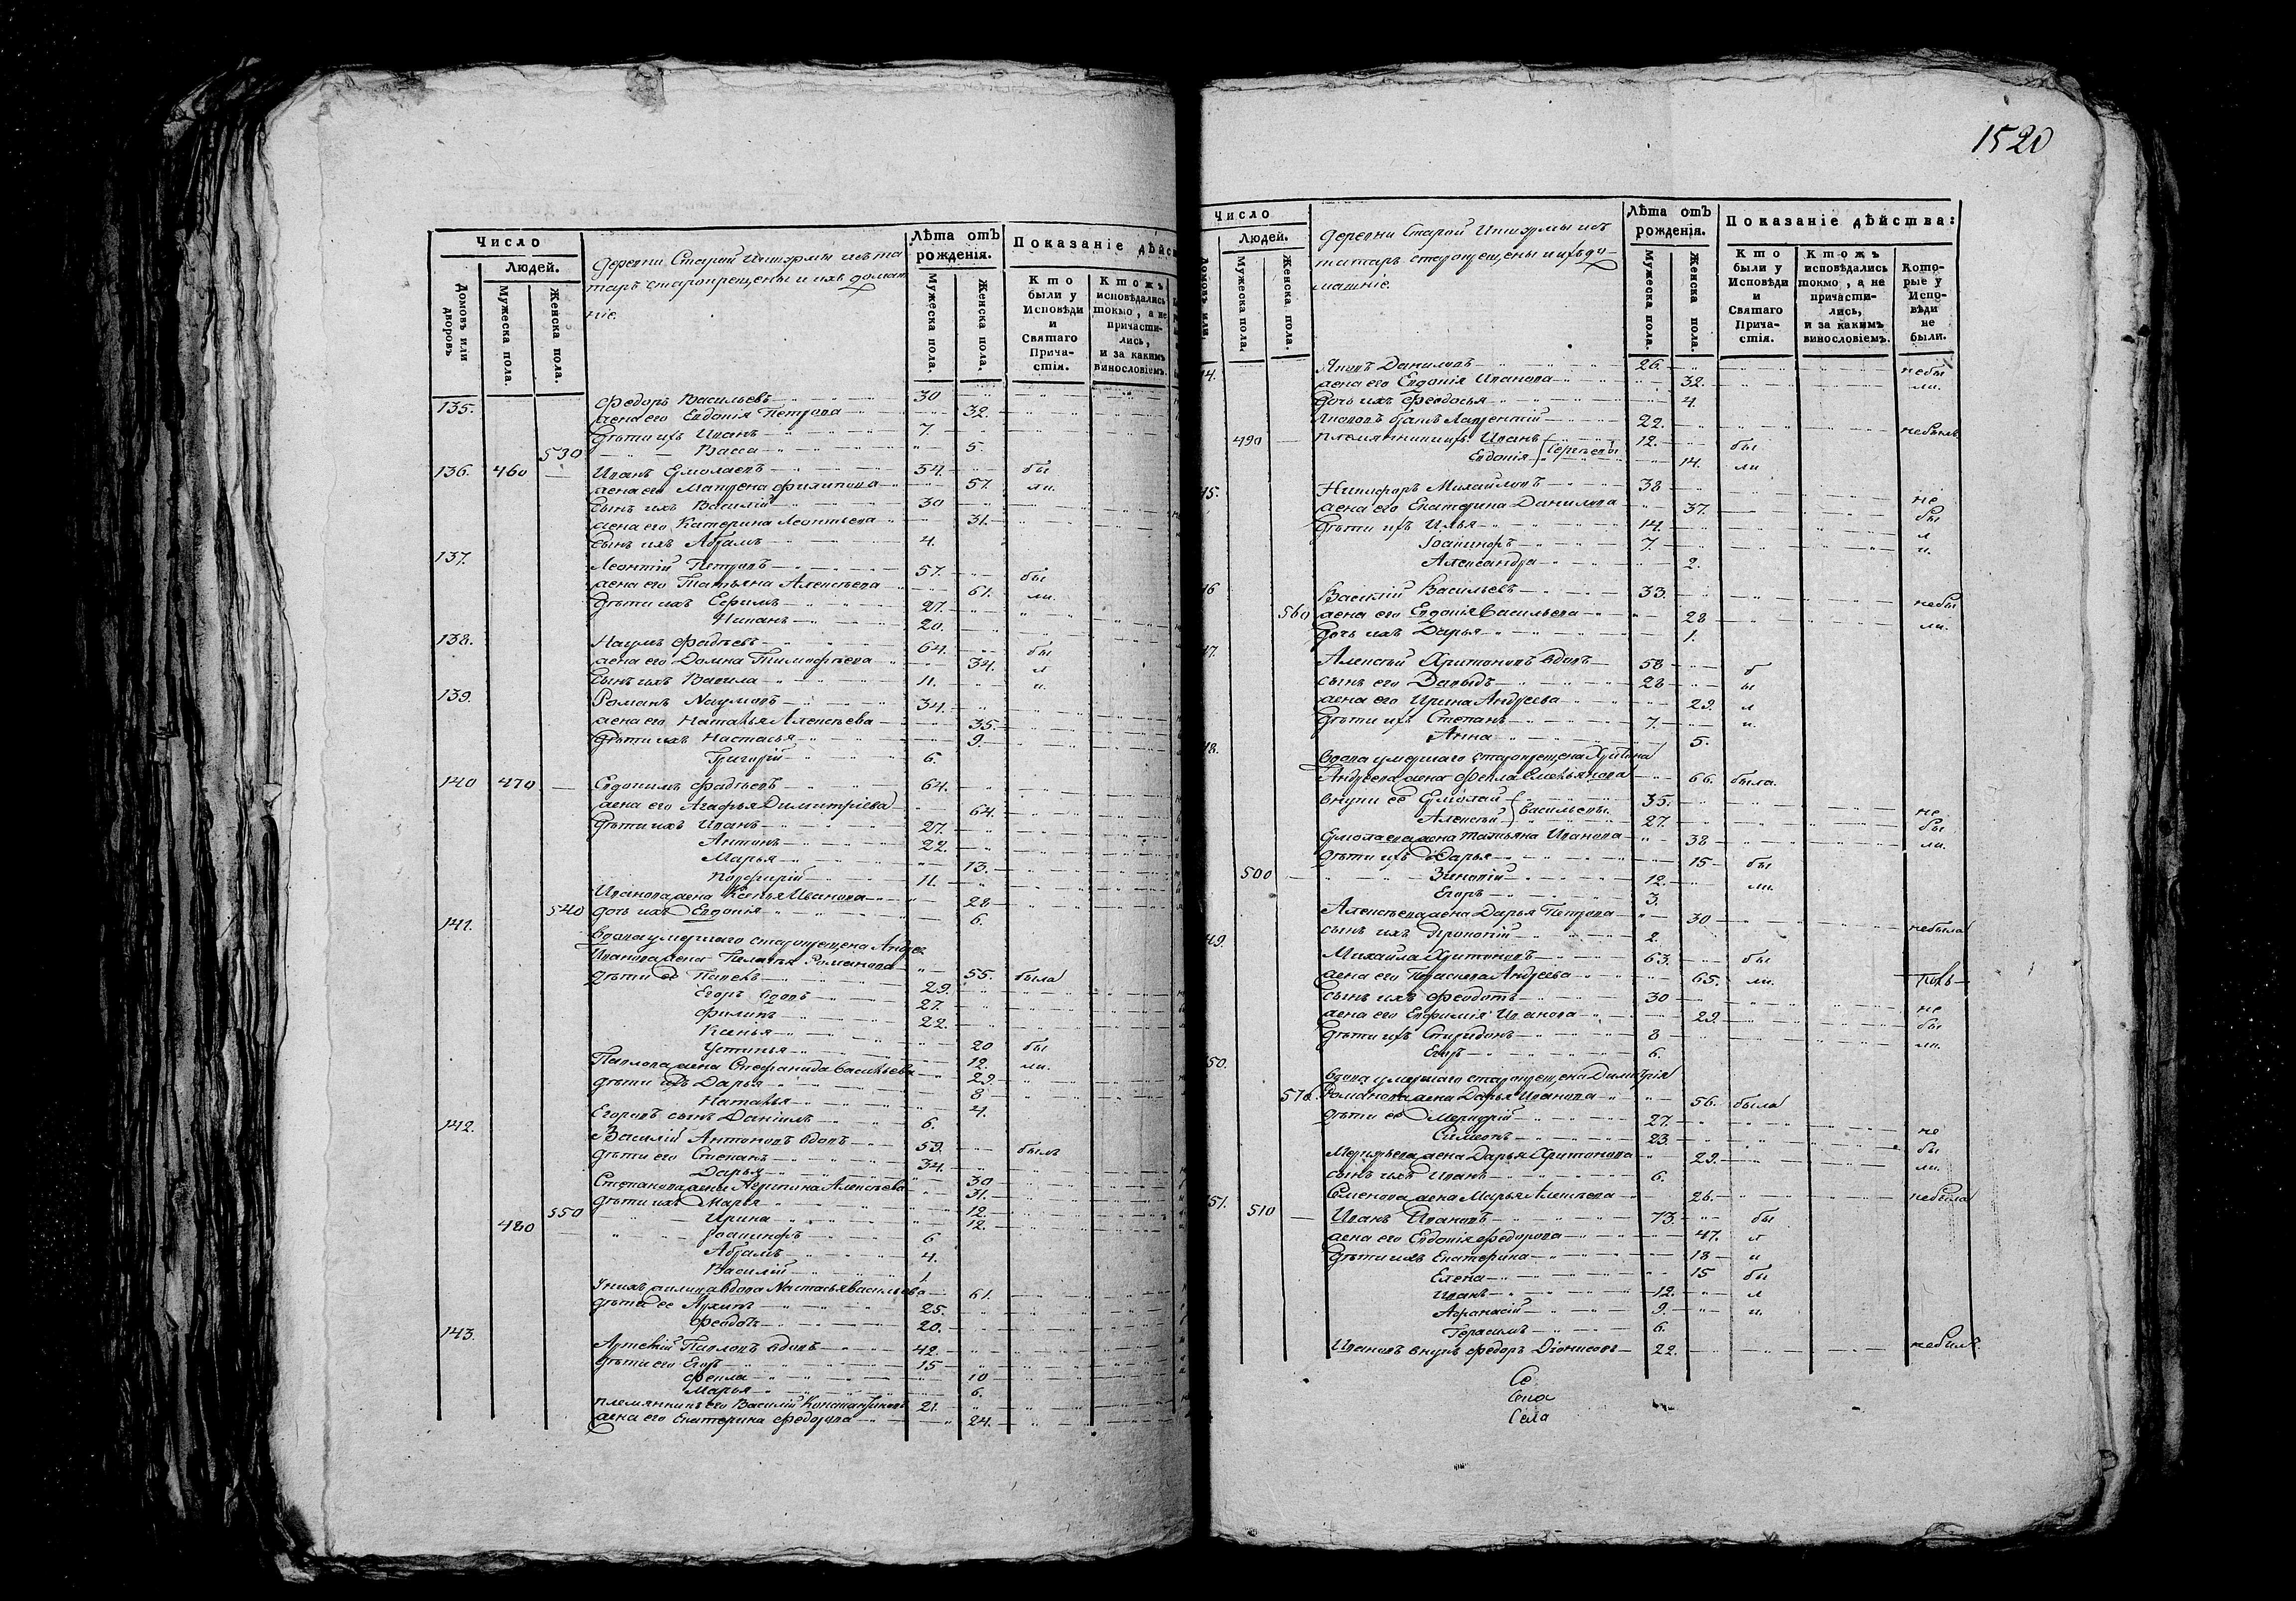 1520
Число
Людей.
Домовъ или дворовъ
Мужеска пола.
Женска пола.
деревни Старой Ипшормы изъ та
таръ старокрещены и ихъ домаш
ніе
Лѣта отъ рожденія.
Мужеска пола.
Женска пола.
Показаніе дѣйс
Кто были у Исповѣди и Святаго Прича- стія.
Ктожъ исповѣдались токмо, а не причасти- лись, и за какимъ винословіемъ.
135. Федоръ Васильевъ 30
жена его Евдокія Петрова 32.
дѣти ихъ Иванъ 7.
530 Васса 5.
136. 460 Иванъ Ермолаевъ 54. бы
жена его Матрена Филипова 57. ли.
сынъ ихъ Василій 30
жена его Катерина Леонтьева 31.
сынъ ихъ Абрамъ 4.
137. Леонтій Петровъ 57. бы
жена его Татьяна Алексѣева 61. ли.
дѣти ихъ Ефимъ 27.
20.
138. Наумъ Фадѣевъ 64. бы
жена его Домна Тимофѣева 34. л
сынъ ихъ Вавила 11. и.
139. Романъ Наумовъ 34.
жена его Наталья Алексѣева 35.
дѣти ихъ Настасья 9.
Григорій 6.
140 470 Евдокимъ Фадѣевъ 64.
жена его Агафья Димитріева 64.
дѣти ихъ Иванъ 27.
Антонъ 22.
Марья 13.
Порфирій 11.
Иванова жена Ксенья Иванова 28
540 дочь ихъ Евдокія 6.
141. вдова умершаго старокрещена Андрея
Иванова жена Пелагья Романова 55. была
дѣти ее Павелъ 29.
Егоръ вдовъ 27.
Филипъ 22.
Ксенья 20 бы
Устинья 12. ли.
Павлова жена Степанида Васильева 29.
дѣти ихъ Дарья 8
Наталья 4.
Егоровъ сынъ Даніилъ 6.
142. Василій Антоновъ вдовъ 59. былъ
дѣти его Степанъ 34.
Дарья 30
Степанова жена Агрипина Алексѣева 31.
дѣти ихъ Марья 12.
550 Ирина 12.
480 Іоакиморъ 6
Абрамъ 4.
Василій 1.
У нихъ жилица вдова Настасья Васильева 61.
дѣти ее Архипъ 25.
Феодотъ 20.
143. Артемій Павловъ вдовъ 42.
дѣти его Егоръ 15
Фекла 10
Марья 6.
племянникъ его Василій Константиновъ 21.
жена его Екатерина Федорова 24.
Число
Людей.
Домовъ или
Мужеска пола.
Женска пола.
деревни Старой Ипшормы изъ
татаръ старокрещены и ихъ до-
машніе.
Лѣта отъ рожденія.
Мужеска пола.
Женска пола.
Показаніе дѣйства:
Кто были у Исповѣди и Святаго Прича- стія.
Ктожъ исповѣдались токмо, а не причасти- лись, и за какимъ винословіемъ.
Кото- рые у Испо- вѣди не были.
14. Яковъ Даниловъ 26. небы
жена его Евдокія Иванова 32. ли.
дочь ихъ Феодосья 4.
Яковъ братъ Лаврентій 22. небылъ
490 племянники ихъ Иванъ 12. бы
Евдокія Сергѣевы 14. ли
15. Никифоръ Михайловъ 38 не
жена его Екатерина Данилова 37. бы
дѣти ихъ Илья 14. л
Іоакиморъ 7. и.
Александра 2.
16 Василій Васильевъ 33. небы
560 жена его Евдокія Васильева 28 ли.
дочь ихъ Дарья 1.
17. Алексѣй Харитоновъ вдовъ 58 б
сынъ его Давыдъ 28 ы
жена его Ирина Андреева 29. л
дѣти ихъ Степанъ 7. и.
Анна 5.
18. вдова умершаго старокрещена Харитона
Андреева жена Фекла Емельянова 66. была.
внуки ее Ермолай 35. не
Алексѣй Васильевы. 27. бы
Ермолаева жена Татьяна Иванова 38 ли.
дѣти ихъ Дарья 15 бы
500 Зиновій 12. ли.
Егоръ 3.
Алексѣева жена Дарья Петрова 30 небыла
сынъ ихъ Прокопій 2.
49. Михайла Харитоновъ 63. бы
жена его Прасковья Андреева 65. ли.
сынъ ихъ Феодотъ 30 не
жена его Евфимія Иванова 29. бы
дѣти ихъ Спиридонъ 8 ли.
Егоръ 6.
50. вдова умершаго старокрещена Димитрія
570 Романова жена Дарья Иванова 56. была
дѣти ее Меркурій 27. не
Симеонъ 23 бы
Меркурьева жена Дарья Харитонова 29. ли.
сынъ ихъ Иванъ 6.
Семенова жена Марья Алексѣева 26. небыла
151. 510 Иванъ Ивановъ 73. бы
жена его Евдокія Федорова 47. л
дѣти ихъ Екатерина 18 и
Елена 15 бы
Иванъ 12. л
Афанасій 9. и.
Герасимъ 6.
Ивановъ внукъ Федоръ Діонисовъ 22. небылъ.
Се
Села
Села